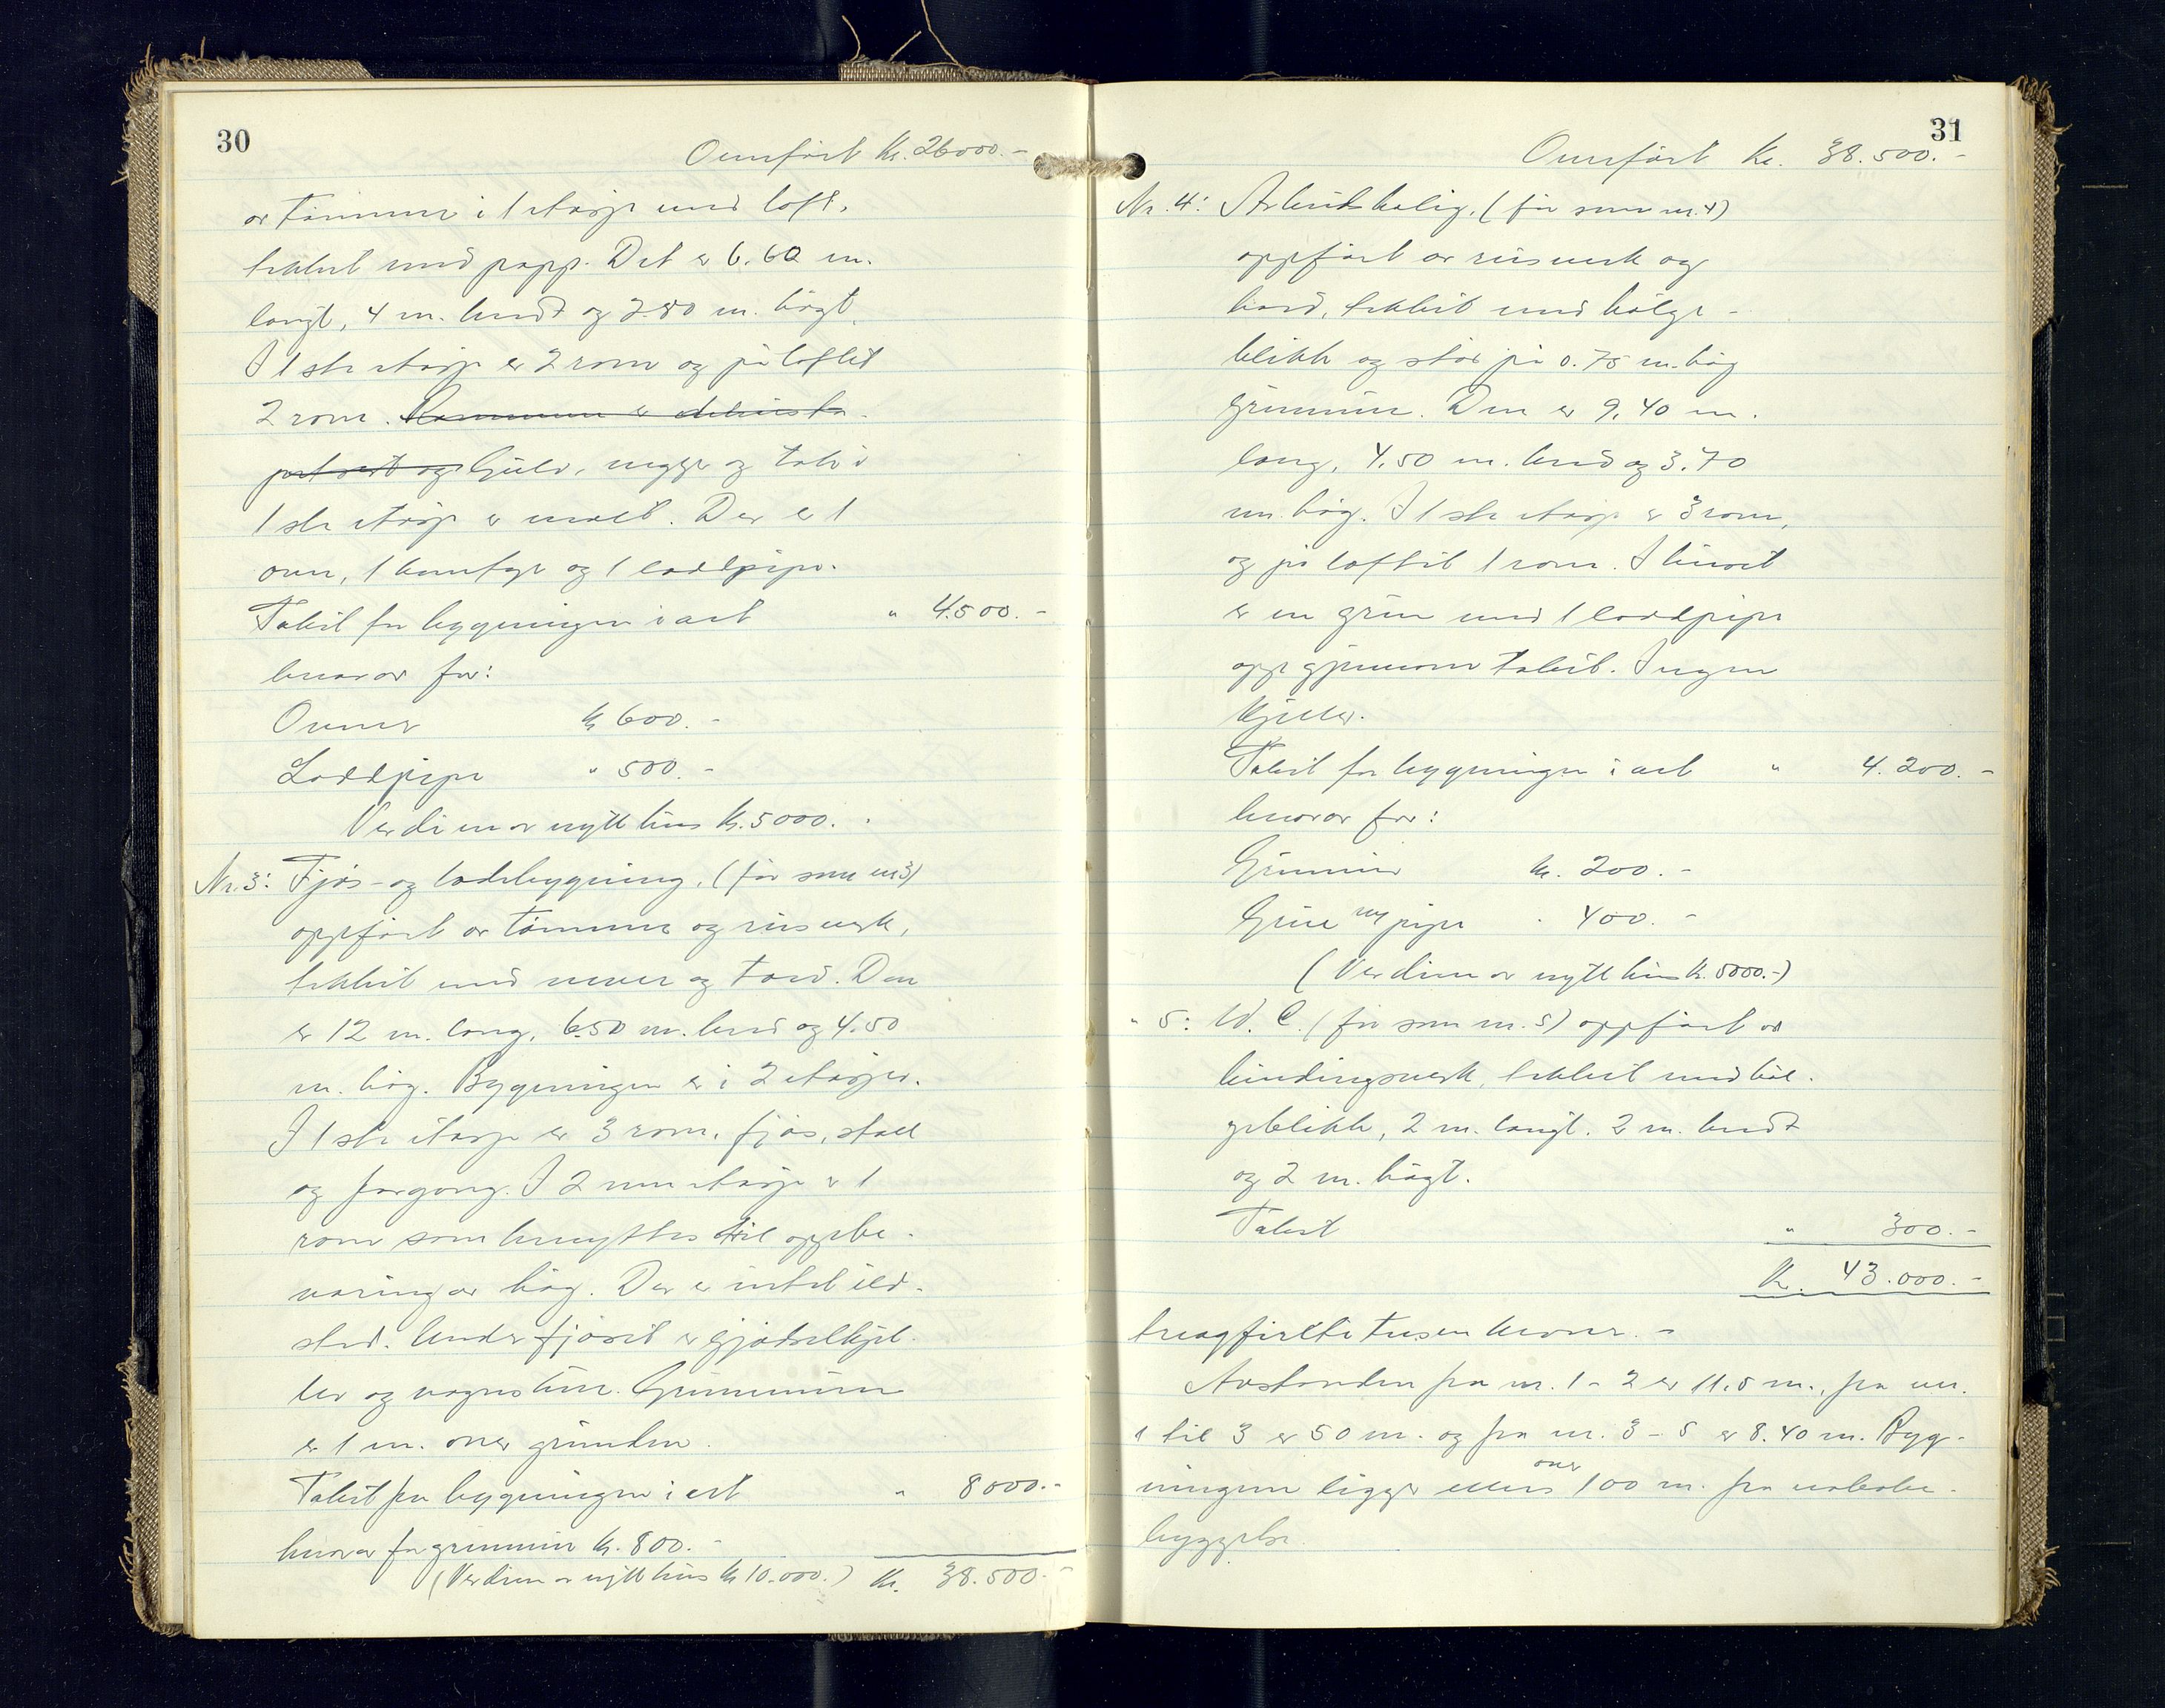 30
Overført Kr. 26000.-
av tømmer i 1 etasje med loft,
tekket med papp. Det er 6.60 m.
langt, 4 m. bredt og 2.80 m. høgt.
I 1ste etasje er 2 rom og på loftet
2 rom. Rommene er delvis
og Gulv, vegger og tak i
1ste etasje er malt. Der er 1
ovn, 1 komfyr og 1 loddpipe.
Takst for bygningen i alt " 4.500.-
hvorav for:
Ovner kr 600.-
Loddpipe " 500.-
Verdien av nytt hus kr. 5000.
Nr. 3: Fjøs- og ladebygning, (før som nr 3)
oppført av tømmer og reisverk,
tekket med never og torv. Den
er 12 m. lang, 6.50 m. bred og 4.50
m. høg. Bygningen er i 2 etasjer.
I 1ste etasje er 3 rom, fjøs, stall
og forgang. I 2nen etasje er 1
rom som benyttes til oppbe-
varing av høy. Der er intet ild-
sted. Under fjøset er gjødselkjel-
ler og vognskur. Grunnmuren
er 1 m. over grunnen.
Takst for bygningen i alt " 8000.-
hvorav for grunnmur kr. 800.-
(Verdien av nytt hus kr 10.000.) Kr. 38.500.-
31
Overført Kr. 38.500.-
Nr. 4: Arbeidsbolig, (før som nr. 4)
oppført av reisverk og
bord, tekket med bølge-
blikk og står på 0.75 m. høg
grunnmur. Den er 9.40 m.
lang, 4.50 m. bred og 3.70
m. høg. I 1ste etasje er 3 rom,
og på loftet 1 rom. I huset
er en grue med 1 loddpipe
opp gjennom taket. Ingen
kjeller.
Takst for bygningen i alt " 4.200.-
hvorav for:
Grunnmur kr. 200.-
Grue og pipe " 400.-
(Verdien av nytt hus kr. 5000.-)
" 5: W.C. (før som nr. 5) oppført av
bindingsverk, tekket med bøl-
geblikk, 2 m. langt, 2 m. bredt
og 2 m. høgt.
Takst " 300.-
Kr. 43.000.-
treogfirtitusen kroner.-
Avstanden fra nr. 1 - 2 er 11.5 m., fra nr.
1 til 3 er 50 m. og fra nr. 3 - 5 er 8.40 m. Byg-
ningene ligger ellers over 100 m. fra nabobe-
byggelse.